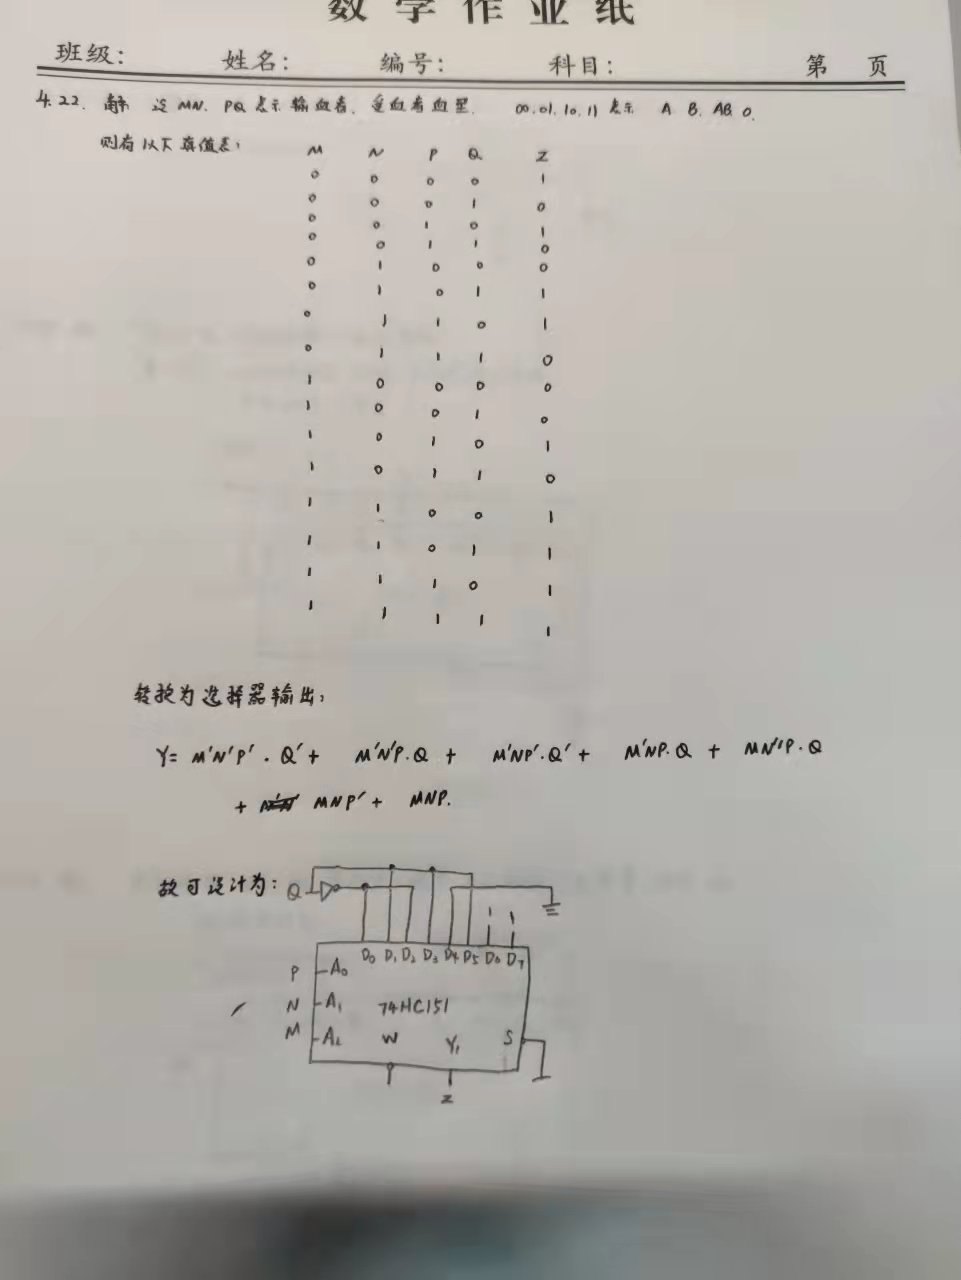 数学作业纸
班级: 姓名: 编号: 科目: 第 页
4.22. 解 设 MN. PQ 表示输血者、受血者血型. 00.01.10.11 表示 A B. AB. O.
则有以下真值表:
M N P Q Z
0 0 0 0 1
0 0 0 1 0
0 0 1 0 1
0 0 1 1 0
0 1 0 0 0
0 1 0 1 1
0 1 1 0 1
0 1 1 1 0
1 0 0 0 0
1 0 0 1 0
1 0 1 0 1
1 0 1 1 0
1 1 0 0 1
1 1 0 1 1
1 1 1 0 1
1 1 1 1 1
转换为选择器输出:
Y= M'N'P' · Q' + M'N'P·Q + M'NP'·Q' + M'NP·Q + MN''P·Q
+ MNP' + MNP.
故可设计为: Q
1 1
D0 D1 D2 D3 D4 D5 D6 D7
P A0
N A1 74HC151
M A2 W Y1 S
Z